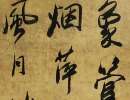 象管
烟萍
風月